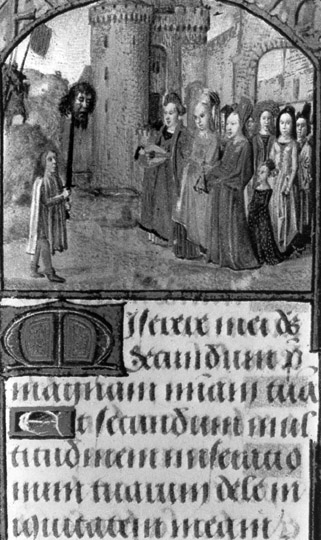 Miserere mei ds
secundum
magnam miam tuā
Et secundum mul
titudinem miseratio
num tuarum dele in
iquitatem meam